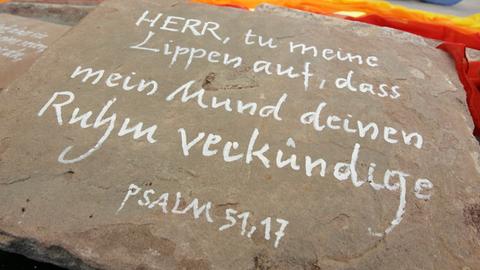 HERR, tu meine
Lippen auf, dass
mein Mund deinen
Ruhm verkündige
PSALM 51,17